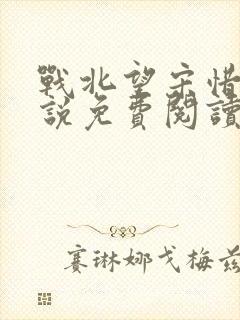 戰北望宋惜
說免費閱讀
賽琳娜戈梅茲